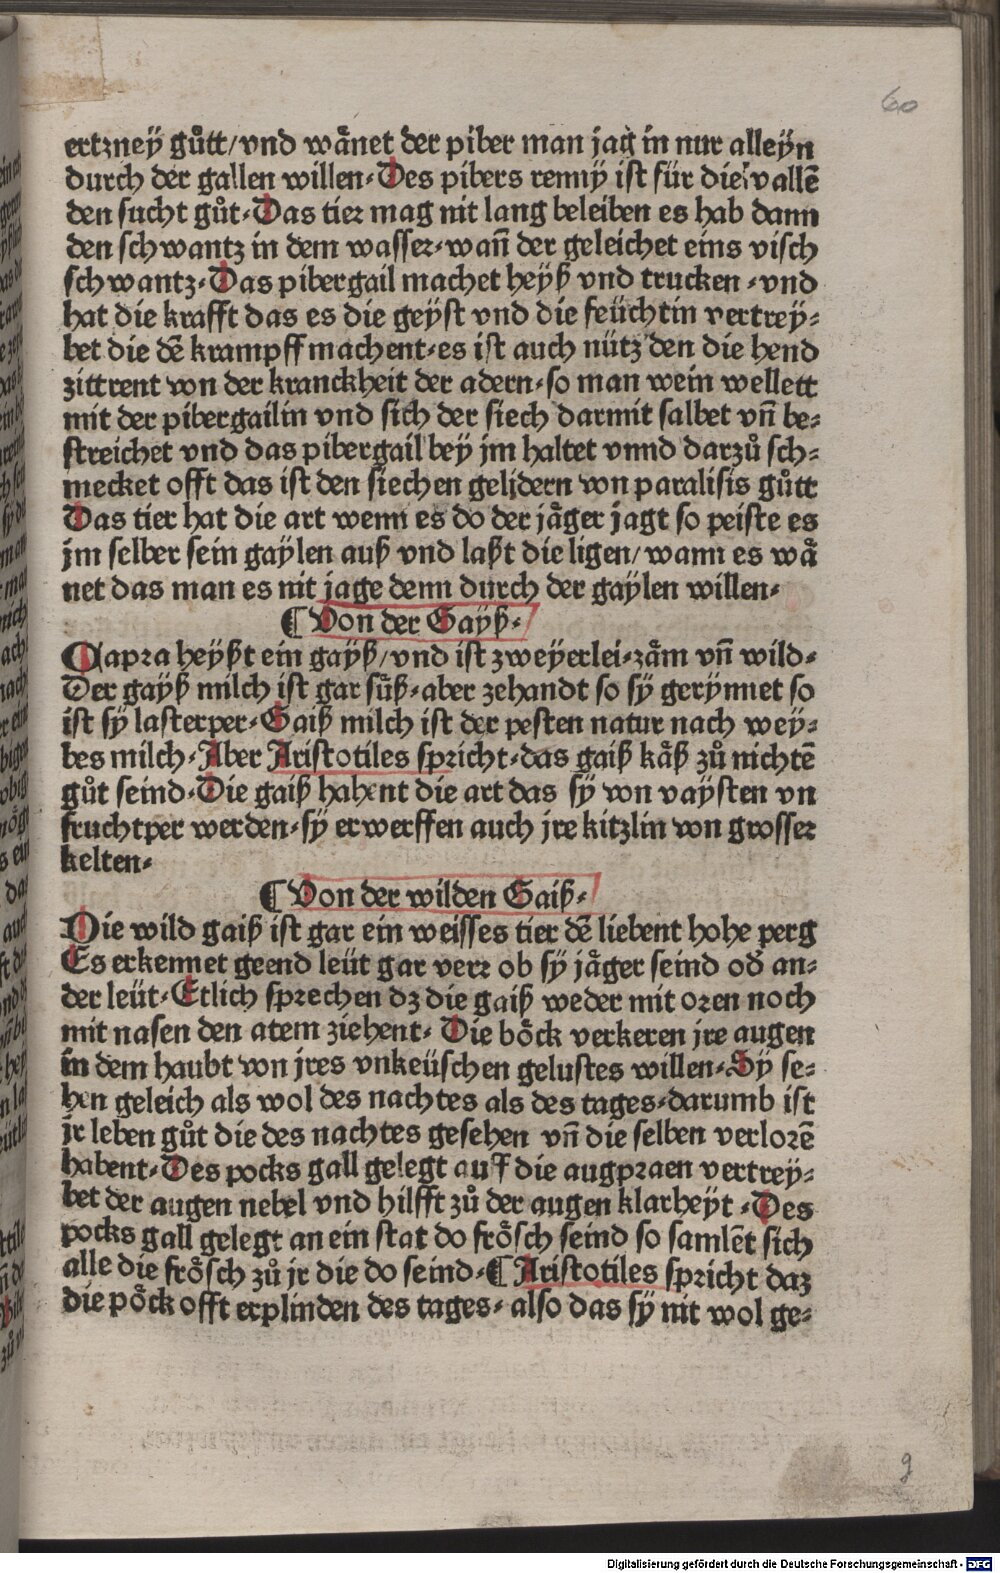 60
ertzney gůtt/vnd wånet der piber man jag in nur alleyn
durch der gallen willen. Des pibers renny ist für die vallē
den sucht gůt. Das tier mag nit lang beleiben es hab dann
den schwantz in dem wasser. wañ der geleichet eins visch
schwantz. Das pibergail machet heyß vnd trucken. vnd
hat die krafft das es die geyst vnd die feüchtin vertrey⸗
bet die dē krampff machent. es ist auch nütz den die hend
zittrent von der kranckheit der adern. so man wein wellett
mit der pibergailin vnd sich der siech darmit salbet vñ be⸗
streichet vnd das pibergail bey jm haltet vnnd darzů sch⸗
mecket offt das ist den siechen gelidern von paralisis gůtt
Das tier hat die art wenn es do der jåger jagt so peiste es
jm selber sein gaylen auß vnd laßt die ligen/wann es wå
net das man es nit jage denn durch der gaylen willen.
¶ Von der Gayß.
Capra heyßt ein gayß/vnd ist zweyerlei. zåm vñ wild.
Der gayß milch ist gar sůß. aber zehandt so sy gerynnet so
ist sy lasterper. Gaiß milch ist der pesten natur nach wey⸗
bes milch. Aber Aristotiles spricht. das gaiß kåß zů nichtē
gůt seind. Die gaiß habent die art das sy von vaysten vn
fruchtper werden. sy erwerffen auch jre kitzlin von grosser
kelten.
¶ Von der wilden Gaiß.
Die wild gaiß ist gar ein weisses tier dē liebent hohe perg
Es erkennet geend leüt gar verr ob sy jåger seind od̄ an⸗
der leüt. Etlich sprechen dz die gaiß weder mit oren noch
mit nasen den atem ziehent. Die bôck verkeren jre augen
in dem haubt von jres vnkeüschen gelustes willen. Sy se⸗
hen geleich als wol des nachtes als des tages. darumb ist
jr leben gůt die des nachtes gesehen vñ die selben verlorē
habent. Des pocks gall gelegt auff die augpraen vertrey⸗
bet der augen nebel vnd hilfft zů der augen klarheyt. Des
pocks gall gelegt an ein stat do frôsch seind so samlēt sich
alle die frôsch zů jr die do seind. ¶ Aristotiles spricht daz
die pôck offt erplinden des tages. also das sy nit wol ge⸗
g
Digitalisierung gefördert durch die Deutsche Forschungsgemeinschaft - DFG